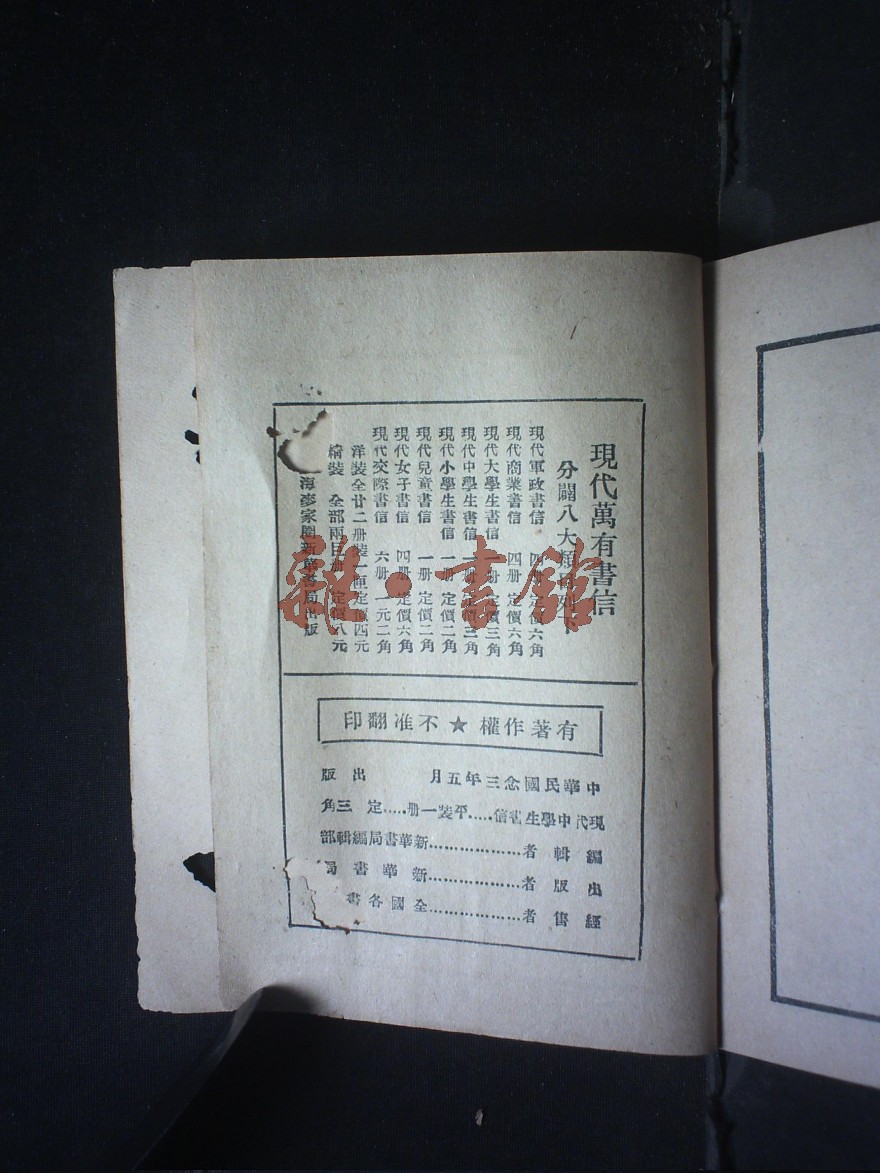 現代萬有書信
分闢八大類
現代軍政書信 四册 定價六角
現代商業書信 四册 定價六角
現代大學生書信 一册 定價三角
現代中學生書信 一册 定價三角
現代小學生書信 一册 定價二角
現代兒童書信 一册 定價二角
現代女子書信 四册 定價六角
現代交際書信 六册 一元二角
洋裝全廿二册裝一匣定價四元
裝 全部兩 定價八元
海麥家圈新華書局出版
有著作權★不准翻印
中華民國念三年五月 出版
現代中學生書信.....平裝一册.....定 三角
編輯者....................新華書局編輯部
出版者....................新華書局
經售者....................全國各書
雜·書館